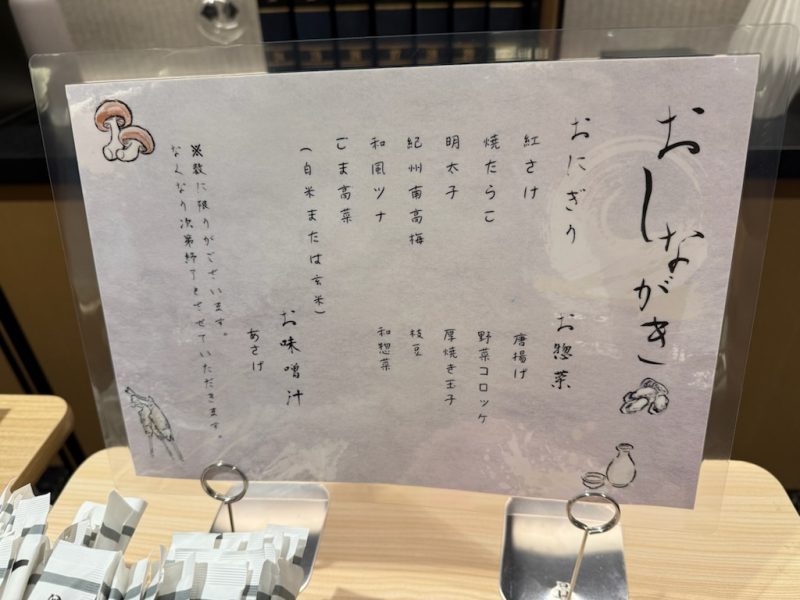 おしながき
おにぎり
紅さけ
焼たらこ
明太子
紀州南高梅
和風ツナ
ごま高菜
(白米または玄米)
お惣菜
唐揚げ
野菜コロッケ
厚焼き玉子
枝豆
和惣菜
お味噌汁
あさげ
※数に限りがございます。
なくなり次第終了とさせていただきます。